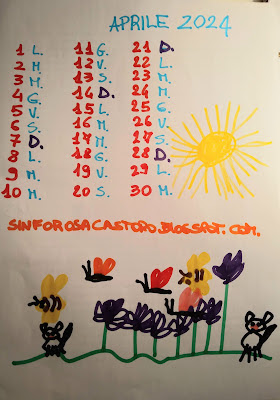 APRILE 2024
1 L.
2 M.
3 M.
4 G.
5 V.
6 S.
7 D.
8 L.
9 M.
10 M.
11 G.
12 V.
13 S.
14 D.
15 L.
16 M.
17 M.
18 G.
19 V.
20 S.
21 D.
22 L.
23 M.
24 M.
25 G.
26 V.
27 S.
28 D.
29 L.
30 M.
SINFOROSACASTORO.BLOGSPOT.COM.